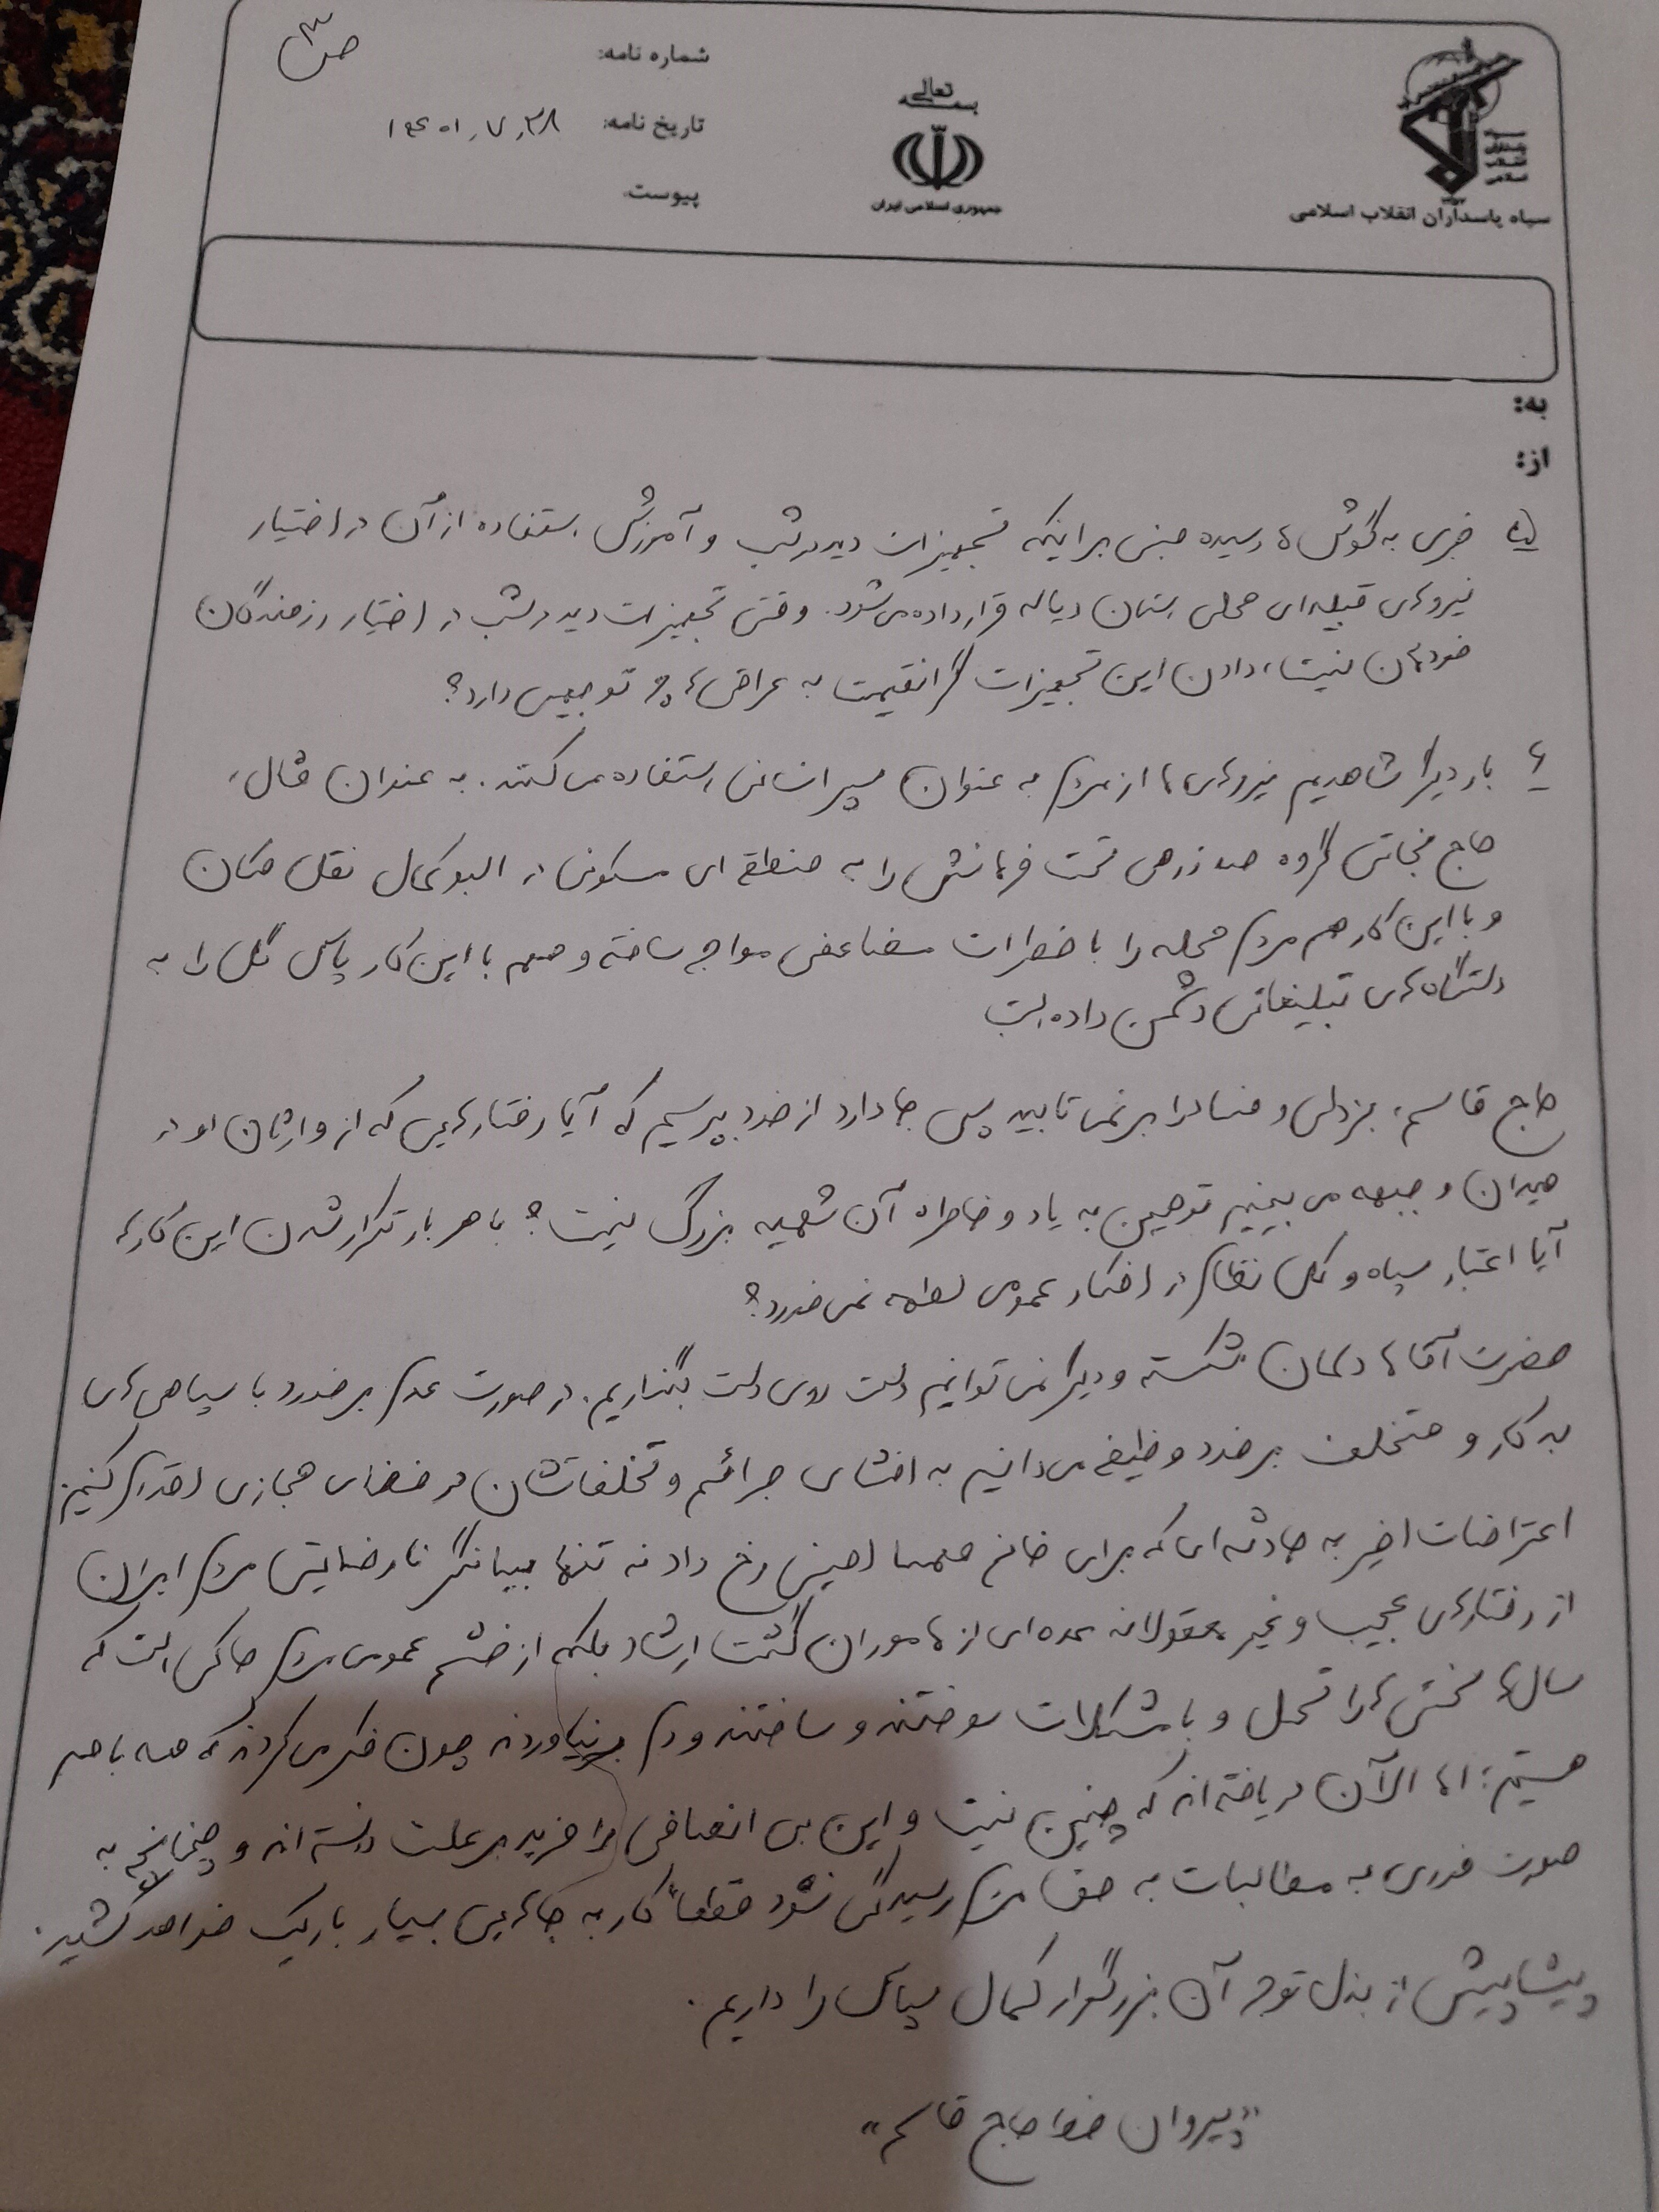 ص۳
شماره نامه:
تاریخ نامه: ۱۴۰۱,۷,۲۸
پیوست:
بسمه تعالی
جمهوری اسلامی ایران
سپاه پاسداران انقلاب اسلامی
سپاه پاسداران انقلاب اسلامی
به:
از:
۵ خبری به گوش ما رسیده مبنی بر اینکه تجهیزات دید در شب و آموزش استفاده از آن در اختیار
نیروهای قبیله‌ای محلی استان دیاله قرار داده می‌شود. وقتی تجهیزات دید در شب در اختیار رزمندگان
خودمان نیست، دادن این تجهیزات گرانقیمت به عراقی‌ها چه توجیهی دارد؟
۶ بار دیگر شاهدیم نیروهای ما از مردم به عنوان سپر انسانی استفاده می‌کنند. به عنوان مثال،
حاج نجاتی گروه ضد زرهی تحت فرمانش را به منطقه‌ای مسکونی در البوکمال نقل مکان
و با این کار هم مردم محله را با خطرات مضاعفی مواجه ساخته و هم با این کار پاس گل را به
دستگاه‌های تبلیغاتی دشمن داده است
حاج قاسم، بزدلی و فساد را بر نمی تابید پس جا دارد از خود بپرسیم که آیا رفتارهایی که از وارثان او در
میدان و جبهه می بینیم توهین به یاد و خاطره آن شهید بزرگ نیست؟ با هر بار تکرار شدن این کارها
آیا اعتبار سپاه و کل نظام در افکار عمومی لطمه نمی خورد؟
حضرت آقا ما دلمان شکسته و دیگر نمی توانیم دست روی دست بگذاریم. در صورت عدم برخورد با سپاهی‌های
بدکار و متخلف بر خود وظیفه می‌دانیم به افشای جرائم و تخلفاتشان در فضای مجازی اقدام کنیم.
اعتراضات اخیر به حادثه‌ای که برای خانم مهسا امینی رخ داد نه تنها بیانگر نارضایتی مردم ایران
از رفتارهای عجیب و غیر معقولانه عده‌ای از ماموران گشت ارشاد بلکه از خشم عمومی مردم حاکی است که
سال‌ها سختی‌ها را تحمل و با مشکلات سوختند و ساختند و دم بر نیاوردند چون فکر می کردند که همه با هم
هستیم؛ اما الآن دریافته‌اند که چنین نیست و این بی انصافی را مزید بر علت دانسته‌اند و چنانچه به
صورت فوری به مطالبات به حق مردم رسیدگی نشود قطعاً کار به جاهایی بسیار باریک خواهد کشید.
پیشاپیش از بذل توجه آن بزرگوار کمال سپاس را داریم.
"پیروان خط حاج قاسم"